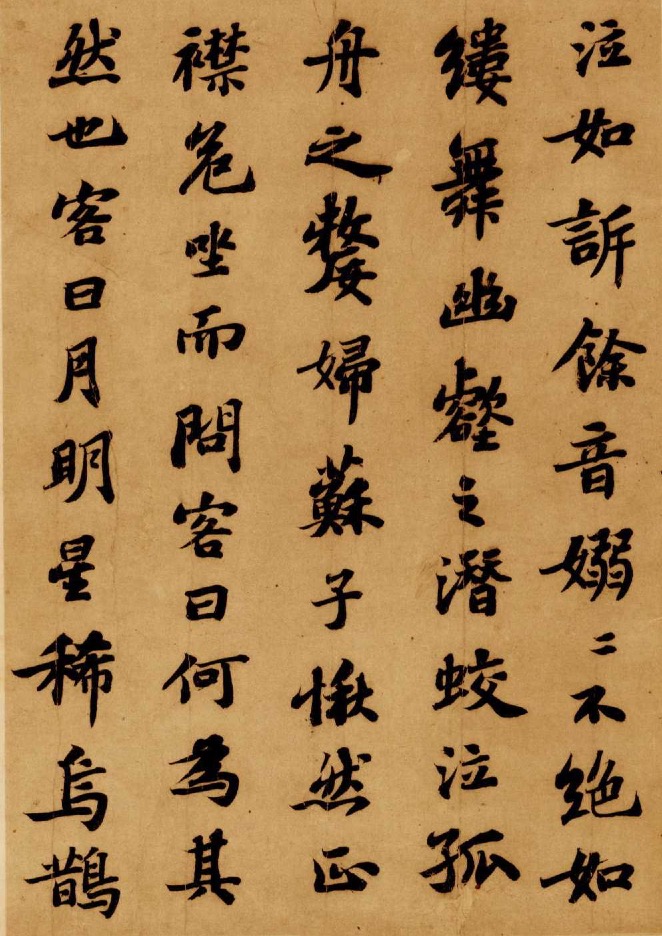 泣如訴餘音嫋二不絕如
縷舞幽壑之潛蛟泣孤
舟之嫠婦蘇子愀然正
襟危坐而問客曰何為其
然也客曰月明星稀烏鵲